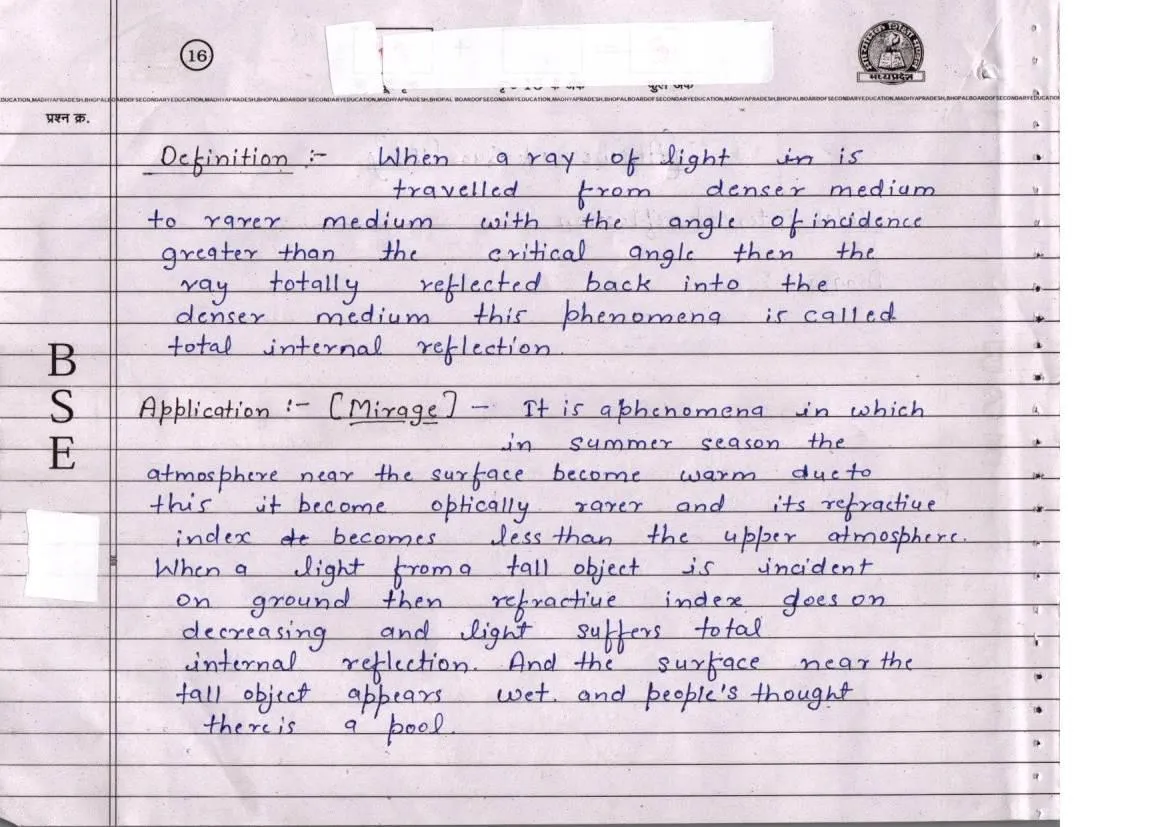 16
मध्यप्रदेश
EDUCATION,MADHYAPRADESH,BHOPALBOARDOFSECONDARYEDUCATION,MADHYAPRADESH,BHOPALBOARDOFSECONDARYEDUCATION,MADHYAPRADESH,BHOPAL BOARDOFSECONDARYEDUCATION,MADHYAPRADESH,BHOPALBOARDOFSECONDARYEDUCATION,MADHYAPRADESH,BHOPALBOARDOFSECONDARYEDUCATION
प्रश्न क्र.
Definition :- When a ray of light is
travelled from denser medium
to rarer medium with the angle of incidence
greater than the critical angle then the
ray totally reflected back into the
denser medium this phenomena is called
total internal reflection.
Application :- [Mirage] - It is a phenomena in which
in summer season the
atmosphere near the surface become warm due to
this it become optically rarer and its refractive
index becomes less than the upper atmosphere.
When a light from a tall object is incident
on ground then refractive index goes on
decreasing and light suffers total
internal reflection. And the surface near the
tall object appears wet. and people's thought
there is a pool.
B
S
E